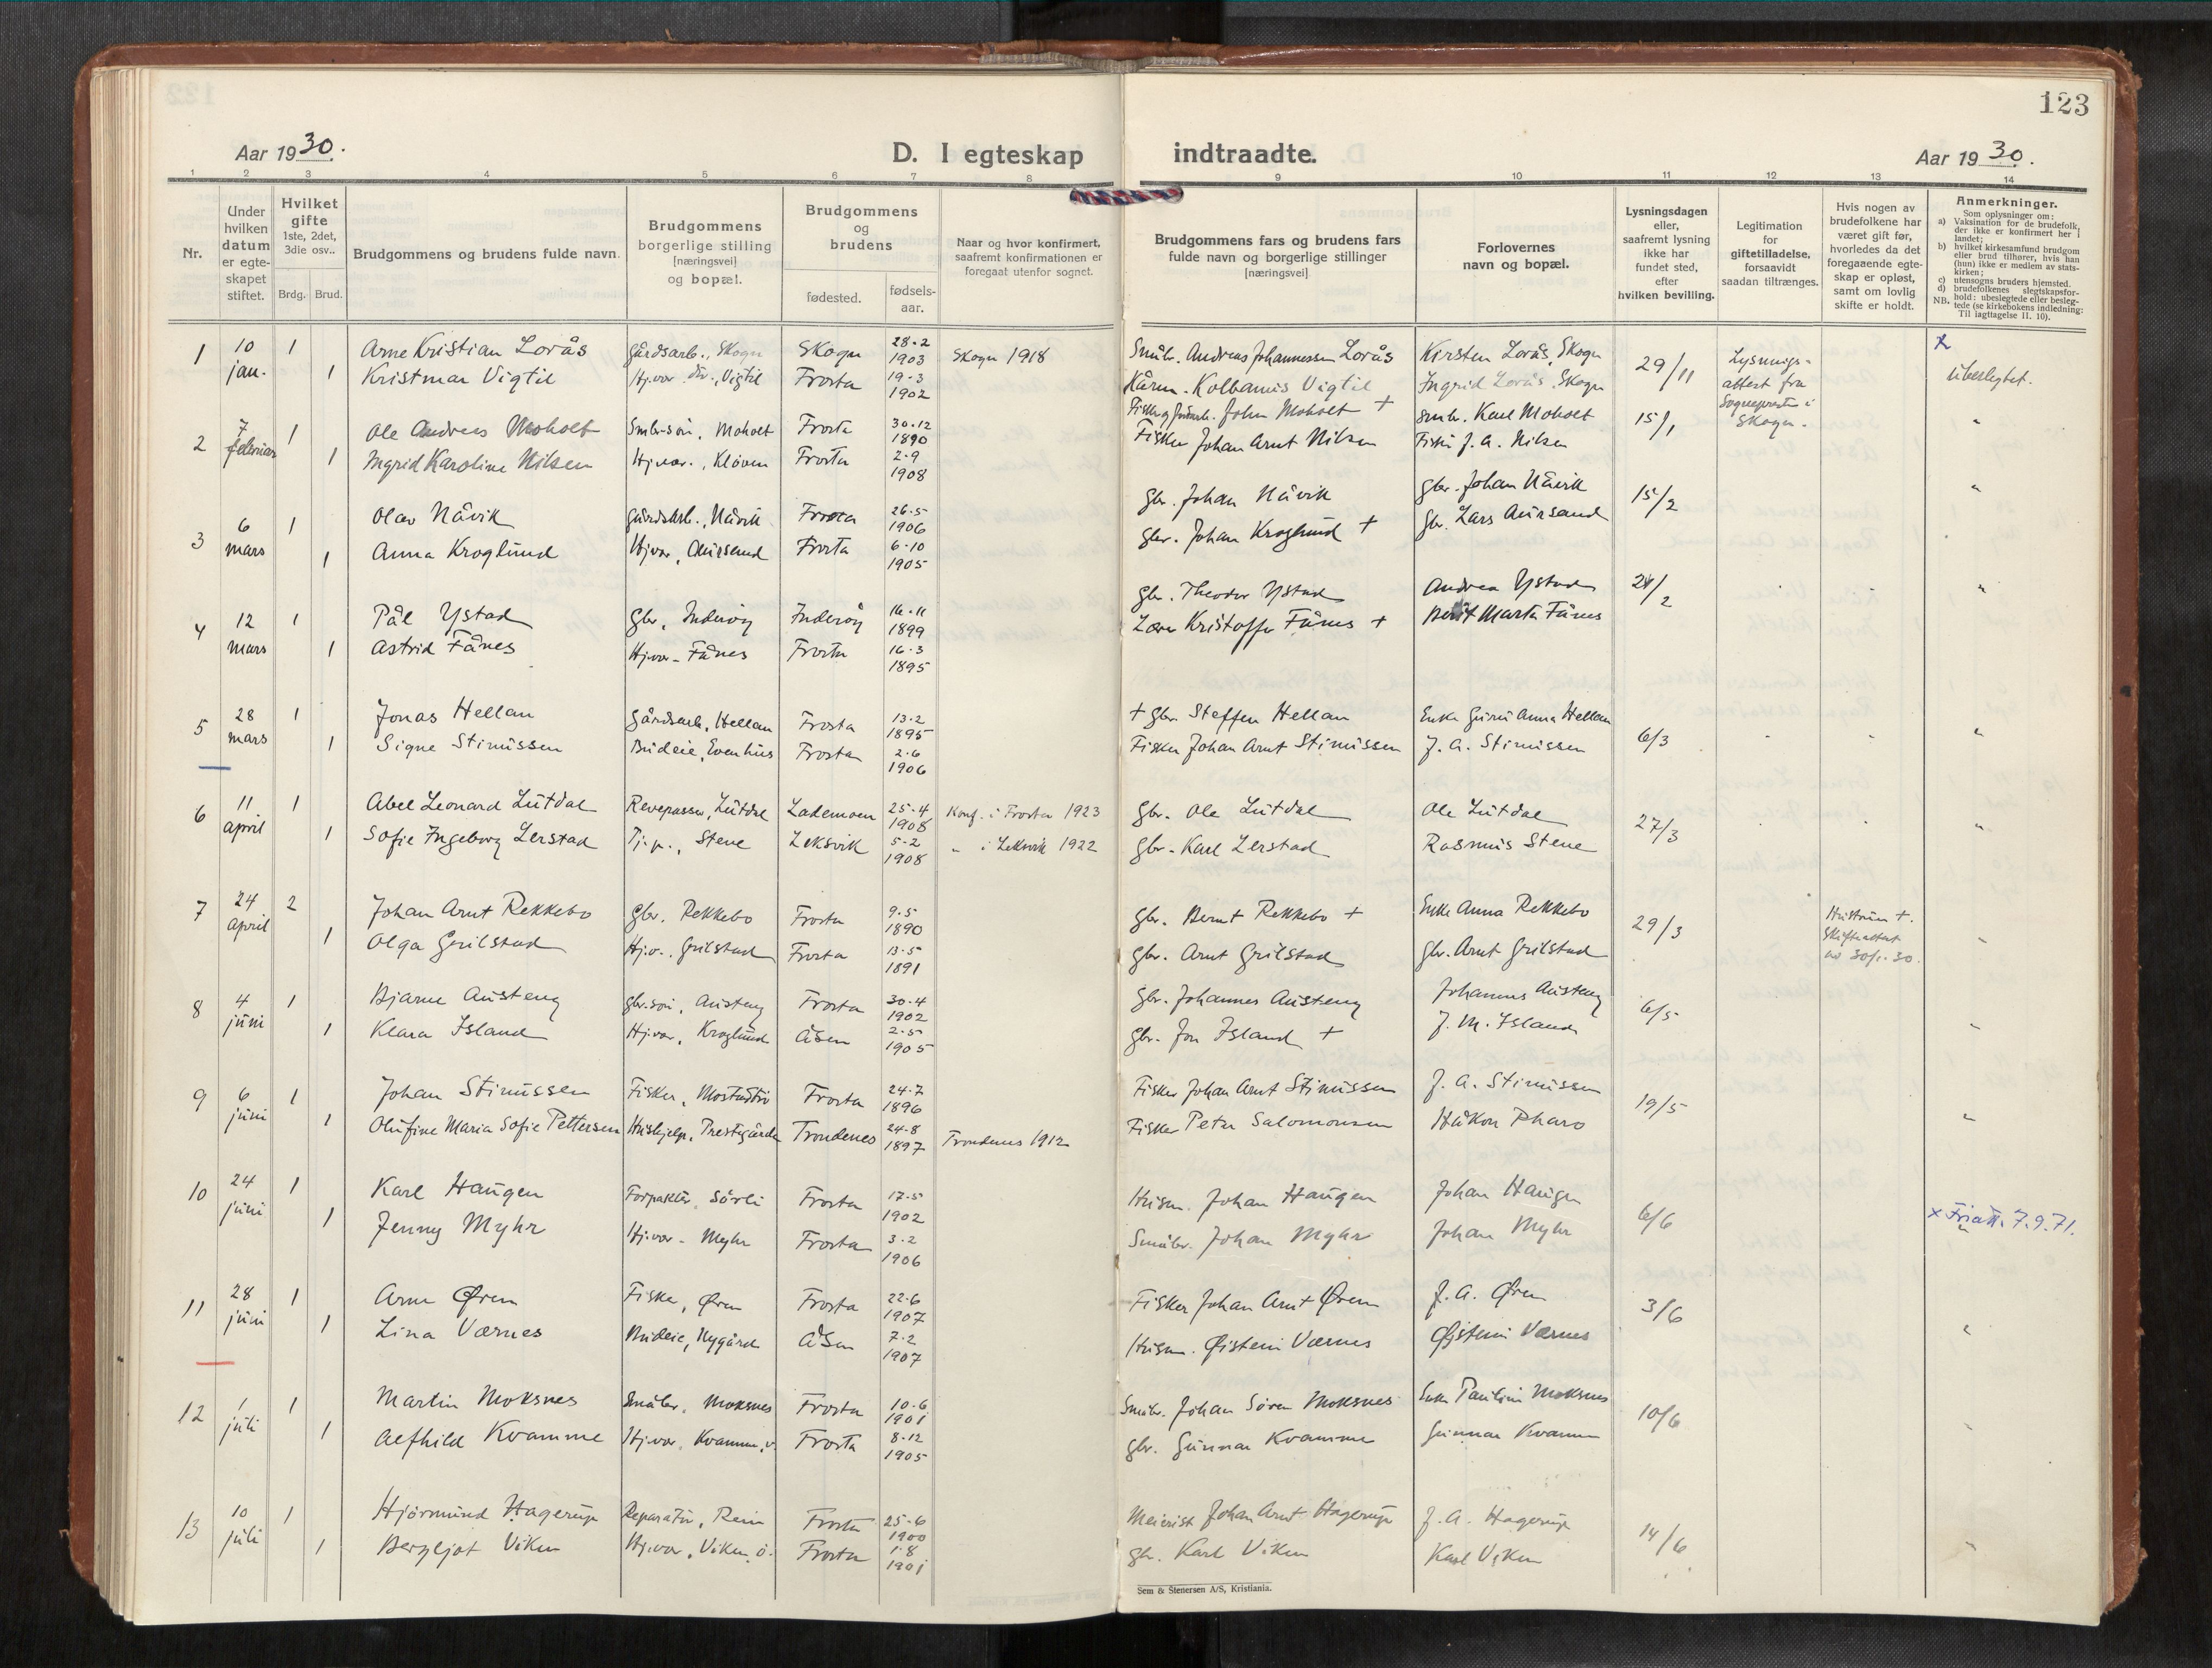 123
Aar 1930.
D. I egteskap indtraadte.
Aar 1930.
1 2 3 4 5 6 7 8 9 10 11 12 13 14
Nr.
Under hvilken datum er egteskapet stiftet.
Hvilket gifte 1ste, 2det, 3die osv..
Brdg. Brud.
Brudgommens og brudens fulde navn.
Brudgommens borgerlige stilling [næringsvei] og bopæl.
Brudgommens og brudens
fødested.
fødselsaar.
Naar og hvor konfirmert, saafremt konfirmationen er foregaat utenfor sognet.
Brudgommens fars og brudens fars fulde navn og borgerlige stillinger [næringsvei]
Forlovernes navn og bopæl.
Lysningsdagen eller, saafremt lysning ikke har fundet sted, efter hvilken bevilling.
Legitimation for giftetilladelse, forsaavidt saadan tiltrænges.
Hvis nogen av brudefolkene har været gift før, hvorledes da det foregaaende egteskap er opløst, samt om lovlig skifte er holdt.
Anmerkninger.
Som oplysninger om:
a) Vaksination for de brudefolk, der ikke er konfirmert her i landet;
b) hvilket kirkesamfund brudgom eller brud tilhører, hvis han (hun) ikke er medlem av statskirken;
c) utensogns bruders hjemsted.
d) brudefolkenes slegtskapsforhold: ubeslegtede eller beslegtede (se kirkebokens indledning: Til iagttagelse II. 10).
NB.
1 10 jan. 1 Arne Kristian Lorås Gårdsarb., Skogn Skogn 28-2 1903 Skogn 1918 Småbr. Andreas Johannessen Lorås Kirsten Lorås, Skogn 29/11 Lysningsattest fra Sognepresten i Skogn. Ubeslegtet.
1 Kristmar Vigtil Hj.vær. Vigtil Frosta 19-3 1902 Kolbanus Vigtil Ingrid Lorås Skogn
2 7 februar 1 Ole Andreas Moholt Småbr.søn, Moholt Frosta 30-12 1890 John Moholt + Småbr. Karl Moholt 15/1 "
1 Ingrid Karoline Nilsen Hj.vær., Kløven Frosta 2-9 1908 Fisker Johan Arnt Nilsen Fisker J. A. Nilsen
3 6 mars 1 Olav Nåvik Gårdsarb., Nåvik Frosta 26-5 1906 Gbr. Johan Nåvik Gbr. Johan Nåvik 15/2 "
1 Anna Kroglund Hj.vær, Aursand Frosta 6-10 1905 Gbr. Johan Kroglund + Gbr. Lars Aursand
4 12 mars 1 Pål Ystad Gbr, Inderøy Inderøy 16-11 1899 Gbr. Theodor Ystad Andrea Ystad 21/2 "
1 Astrid Fånes Hj.vær - Fånes Frosta 16-3 1895 Lærer Kristoffer Fånes + Berit Marta Fånes
5 28 mars 1 Jonas Hellan Gårdsarb, Hellan Frosta 13-2 1895 + Gbr Steffen Hellan Enke Guru Anna Hellan 6/3 "
1 Signe Stinussen Budeie, Evenhus Frosta 2-6 1906 Fisker Johan Arnt Stinussen J. A. Stinussen
6 11 april 1 Abel Leonard Lutdal Revepasser, Lutdal Lademoen 25-4 1908 Konf. i Frosta 1923 Gbr. Ole Lutdal Ole Lutdal 27/3 "
1 Sofie Ingeborg Lerstad Tj.p., Stene Leksvik 5-2 1908 " i Leksvik 1922 Gbr. Karl Lerstad Rasmus Stene
7 24 april 2 Johan Arnt Rekkebo Gbr. Rekkebo Frosta 9-5 1890 Gbr. Bernt Rekkebo + Enke Anna Rekkebo 29/3 Hustrun +. Skifteattest av 30/1-30. "
1 Olga Grilstad Hj.v. Grilstad Frosta 13-5 1891 Gbr. Arnt Grilstad Gbr. Arnt Grilstad
8 4 juni 1 Bjarne Austeng Gbr.søn, Austeng Frosta 30-4 1902 Gbr. Johannes Austeng Johannes Austeng 6/5 "
1 Klara Island Hj.vær, Kroglund Åsen 2-5 1905 Gbr. Jon Island + J. M. Island
9 6 juni 1 Johan Stinussen Fisker, Frosta 24-7 1896 Fisker Johan Arnt Stinussen J. A. Stinussen 19/5 "
1 Olufine Maria Sofie Pettersen Hushjelp, Prestegården Trondenes 24-8 1897 Trondenes 1912 Fisker Peter Salomonsen Håkon Pharo
10 24 juni 1 Karl Haugen Forpaktèr, Sørli Frosta 17-5 1902 Husm. Johan Haugen Johan Haugen 6/6 x Friatt. 7.9.71. "
1 Jenny Myhr Hj.vær - Myhr Frosta 3-2 1906 Småbr. Johan Myhr Johan Myhr
11 28 juni 1 Arne Øren Fisker, Øren Frosta 22-6 1907 Fisker Johan Arnt Øren J. A. Øren 3/6 "
1 Lina Værnes Budeie, Nygård Åsen 7-2 1907 Husm. Øistein Værnes Øistein Værnes
12 1 juli 1 Martin Moksnes Småbr, Moksnes Frosta 10-6 1901 Småbr. Johan Sören Moksnes Enke Pauline Moksnes 10/6 "
1 Alfhild Kvamme Hj.vær, Kvamme, v. Frosta 8-12 1905 Gbr. Gunnar Kvamme Gunnar Kvamme
13 10 juli 1 Hjørmund Hagerup Reparatør, Rein Frosta 25-6 1900 Meierist Johan Arnt Hagerup J. A. Hagerup 14/6 "
1 Bergljot Viken Hj.vær, Viken ö. Frosta 1-8 1901 Gbr. Karl Viken Karl Viken
Sem & Stenersen A/S, Kristiania.